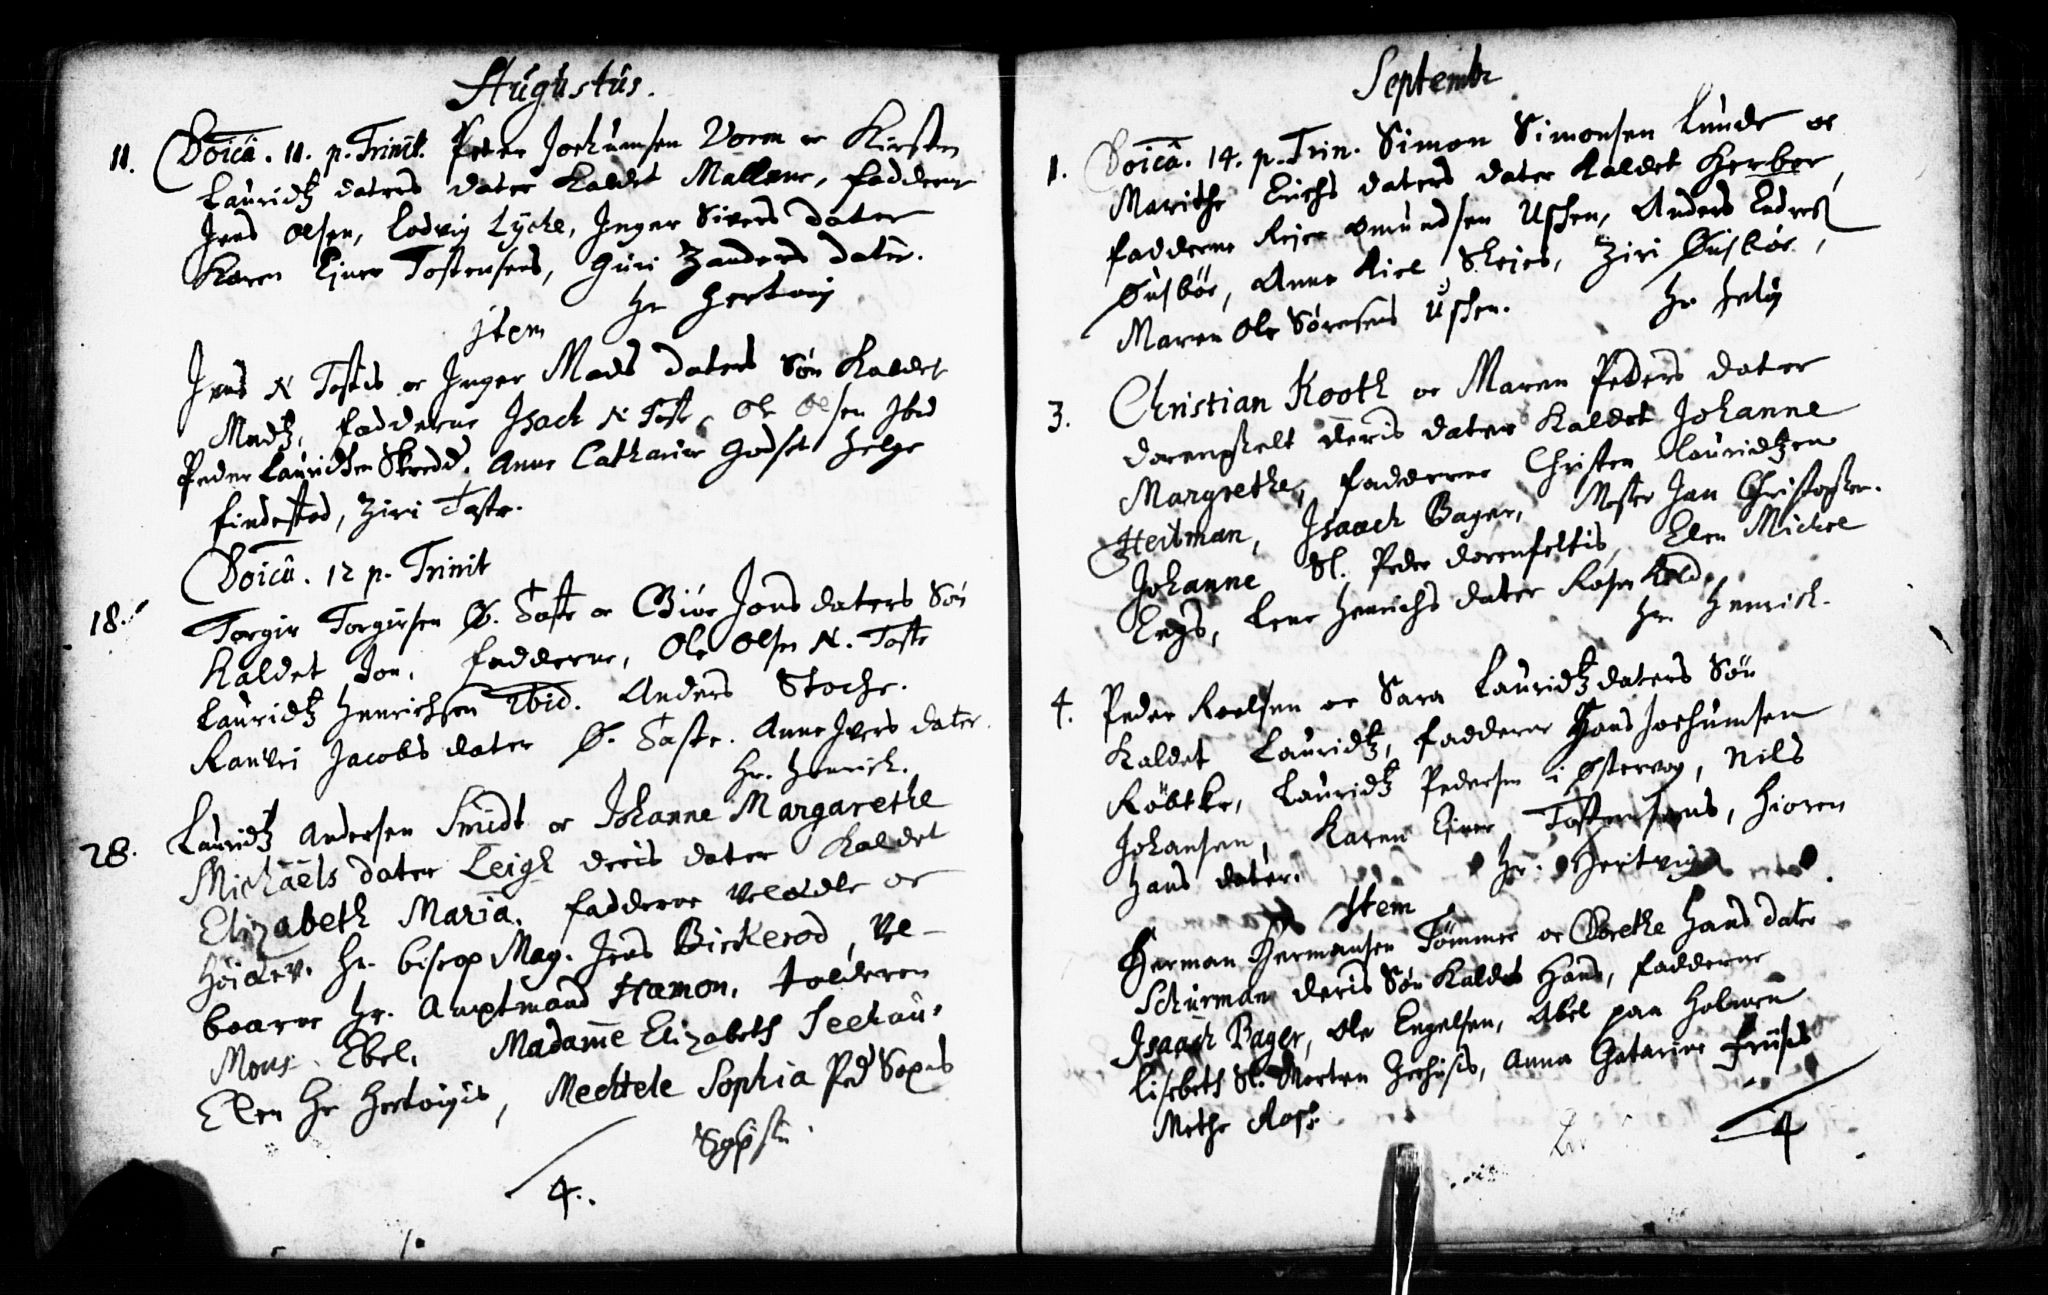 Augustus.
11. Doicâ. 11. p. Trinit. Peder Jochumsen Vorm oc Kirsten
Lauridtz daters dater kaldet Mallene, fadderne
Jens Olsen, Lodvig Lycke, Inger Sivers dater
Karen Ejner Tostensens, Guri Zanders dater.
Hr Hertvig
Item
Jens N Tostis oc Inger Mads daters Søn kaldet
Madtz, fadderne Isach N Tost, Ole Olsen Ibid
Peder Lauridtsen Skredd. Anne Catharine Helge
Findestad, Ziri Toste.
Doicâ. 12 p. Trinit
18. Torgir Torgirsen Ø. Taste oc Jons daters Søn
kaldet Jon. fadderne, Ole Olsen N. Toste
Lauridtz Henrichsen Ibid. Anders Stocke.
Ranvei Jacobs dater Ø. Taste. Anne Ivers dater.
Hr. Henrich.
28. Lauridtz Andersen Smidt oc Johanne Margarethe
Michaëls dater Leigh deris dater kaldet
Elizabeth Maria. fadderne Velædle oc
Høiærv. Hr. Biscop Mag. Jens Birkerod, Vel-
baarne Hr. Amptmand Hamon, tolderen
Mons. Ebel. Madame Elizabeth Seehaus
Ellen Hr Hertvigis, Mechtele Sophia Ped Soxes
4.
Septembr
1. Doicâ. 14. p. Trin. Simon Simonsen Lunde oc
Marithe Erichs daters dater kaldet Herbor,
fadderne Rejer Omundsen Ussen, Anders Endres
Øusbøe, Anne Kiel Skejes, Ziri Øusbøe,
Maren Ole Sørensens Ussen. Hr Helvig
3. Christian Kooth oc Maren Peders dater
Dorenfelt deris dater kaldet Johanne
Margrethe, fadderne Christen Lauridtzen
Heitman, Isaach Bager, Mester Jan Christopher.
Johanne Sl. Peder Dorenfeltis, Elen Michel
Leys, Lene Henrichs dater Rosenkild.
Hr. Henrich.
4. Peder Roelsen oc Sara Lauridtz daters Søn
kaldet Lauridtz, fadderne Hans Jochumsen
Røbtke, Lauridtz Pedersen i Østervog, Nils
Johansen, Karen Ejner Tostensens, Hioren
Hans dater. Hr. Hertvig
Item
Herman Hermansen Tømmer oc Dorethe Hans dater
Schurman deris Søn kaldet Hans, fadderne
Isaach Bager, Ole Engelsen, Abel paa Holmen
Lisebeth Sl. Morten Zechisis, Anna Catarine Friisis
Methe Ross.
4